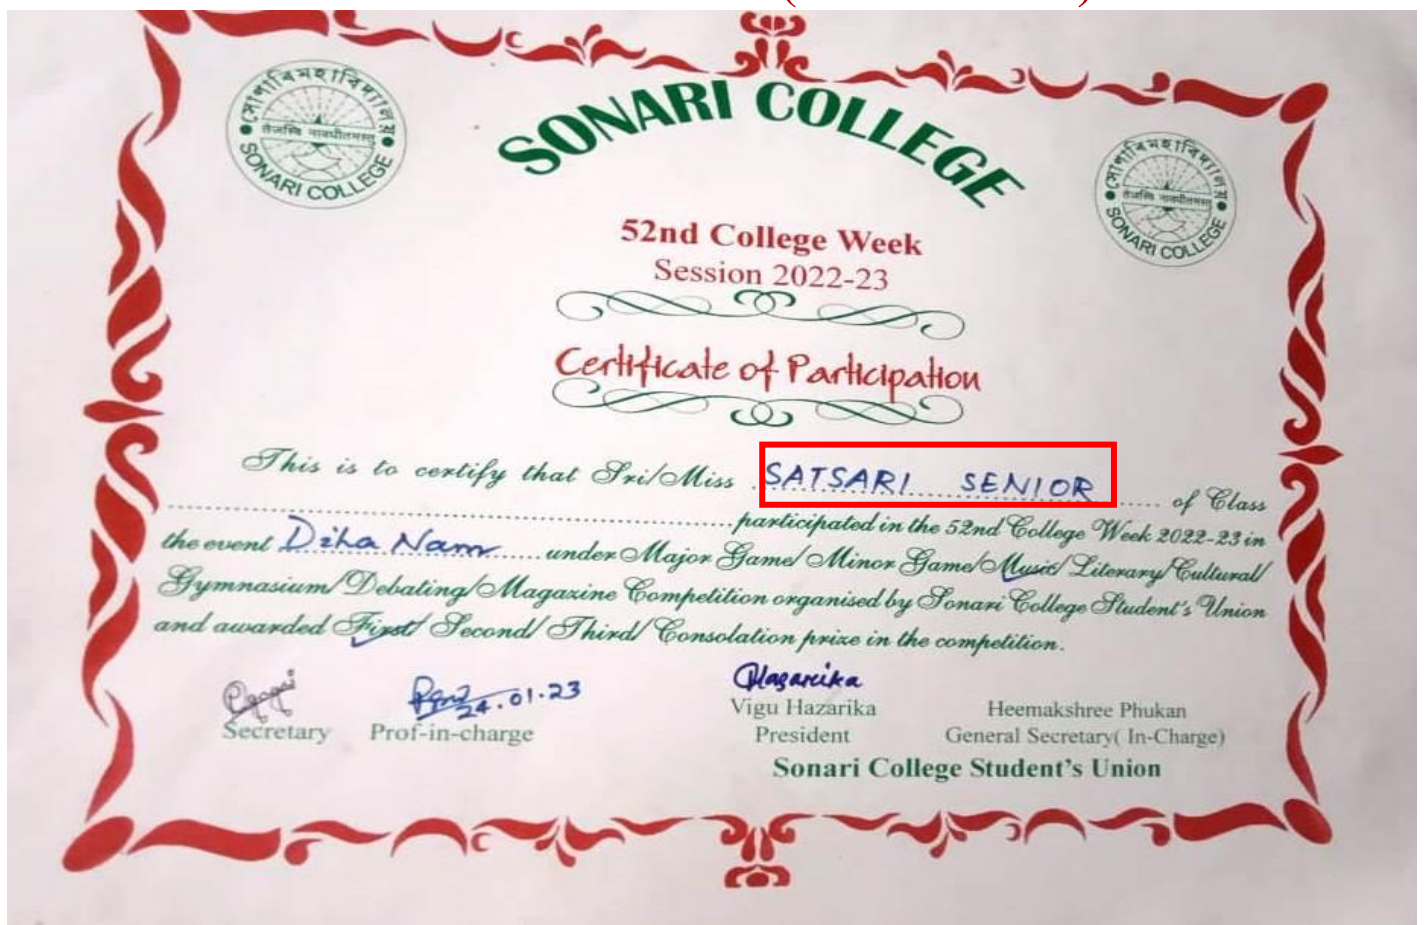 SONARI COLLEGE
সোণাৰি মহাবিদ্যালয়
तेजस्वि नावधीतमस्तु
SONARI COLLEGE
সোণাৰি মহাবিদ্যালয়
तेजस्वि नावधीतमस्तु
SONARI COLLEGE
52nd College Week
Session 2022-23
Certificate of Participation
This is to certify that Sri/Miss SATSARI SENIOR of Class
participated in the 52nd College Week 2022-23 in
the event Diha Nam under Major Game/ Minor Game/ Music/ Literary/ Cultural/
Gymnasium/ Debating/ Magazine Competition organised by Sonari College Student's Union
and awarded First/ Second/ Third/ Consolation prize in the competition.
24.01.23 Hazarika
Vigu Hazarika Heemakshree Phukan
Secretary Prof-in-charge President General Secretary( In-Charge)
Sonari College Student's Union